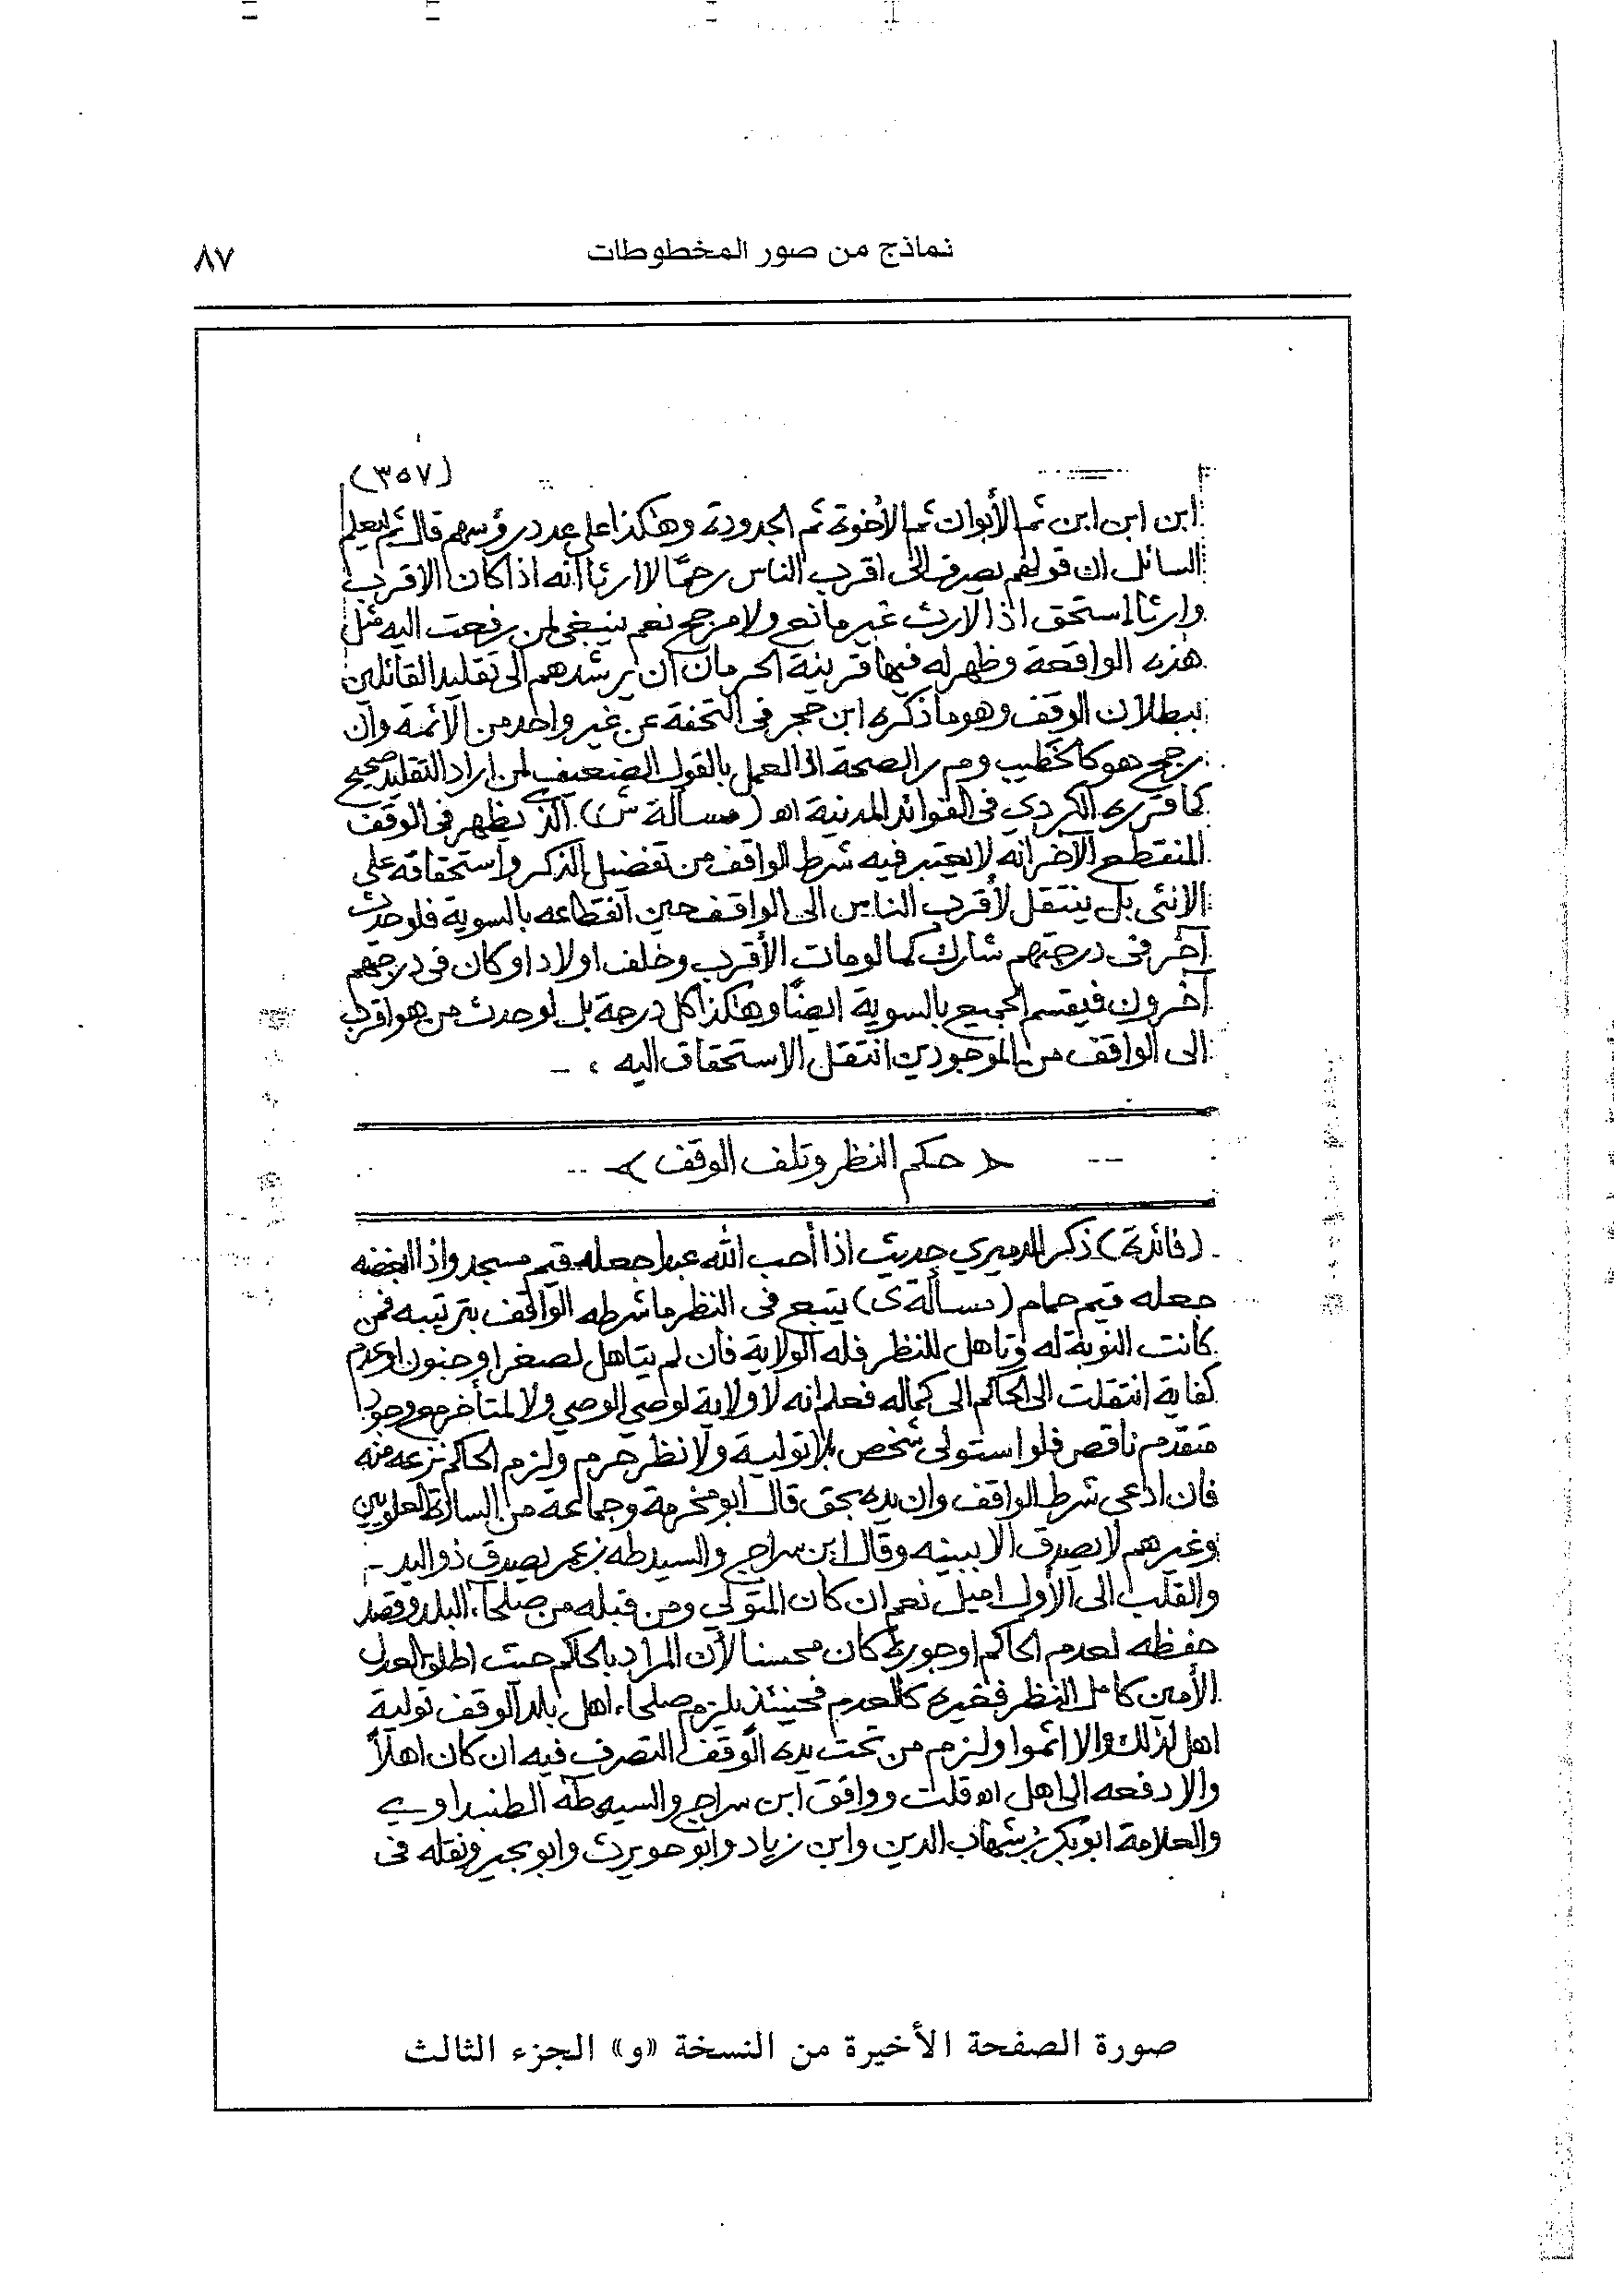 نماذج من صور المخطوطات
٨٧
(٣٥٧)
ابن ابن ابن ثم الأبوان ثم الأخوة ثم الجدودة وهكذا على عدد رؤسهم قال ثم ليعلم
السائل ان قولهم يصرف الى اقرب الناس رحمًا لا ارثا انه اذا كان الاقرب
وارثا استحق اذ الارث غير مانع ولا مرجح نعم ينبغي لمن رفعت اليه مثل
هذه الواقعة وظهر له فيها قرينة الحرمان ان يرشدهم الى تقليد القائلين
ببطلان الوقف وهو ما ذكره ابن حجر في التحفة عن غير واحد من الائمة وان
رجح هو كالخطيب وم ر الصحة اذ العمل بالقول الضعيف لمن اراد التقليد صحيح
كما قرره الكردي في الفوائد المدنية اه (مسألة ش) الذي يظهر في الوقف
المنقطع الآخر انه لا يعتبر فيه شرط الواقف من تفضيل الذكر واستحقاقه على
الانثى بل ينتقل لأقرب الناس الى الواقف حين انقطاعه بالسوية فلو حدث
آخر في درجتهم شارك كما لو مات الأقرب وخلف اولادا وكان في درجتهم
آخرون فيقسم الجميع بالسوية ايضًا وهكذا كل درجة بل لو حدث من هو اقرب
الى الواقف من الموجودين انتقل الاستحقاق اليه ،
< حكم النظر وتلف الوقف >
(فائدة) ذكر الدميري حديث اذا أحب الله عبدا جعله قيم مسجد واذا ابغضه
جعله قيم حمام (مسألة ى) يتبع في النظر ما شرطه الواقف بترتيبه فمن
كانت النوبة له وتاهل للنظر فله الولاية فان لم يتاهل لصغر او جنون او عدم
كفاية انتقلت الى الحاكم الى كماله فعلم انه لا ولاية لوصي الوصي ولا لمتأخر مع وجود
متقدم ناقص فلو استولى شخص بلا تولية ولا نظر حرم ولزم الحاكم نزعه منه
فان ادعى شرط الواقف وان يده بحق قال ابو مخرمة وجماعة من السادة العلويين
وغيرهم لا يصدق الا ببينه وقال ابن سراج والسيد طه بن عمر يصدق ذو اليد
والقلب الى الأول اميل نعم ان كان المتولي ومن قبله من صلحاء البلد وقصد
حفظه لعدم الحاكم او جوره كان محسنا لأن المراد بالحاكم حيث اطلق العدل
الأمين كامل النظر فغيره كالعدم فحينئذ يلزم صلحاء اهل بلد الوقف تولية
اهل لذلك والا اثموا ولزم من تحت يده الوقف التصرف فيه ان كان اهلاً
والا دفعه الى اهل اه قلت ووافق ابن سراج والسيد طه الطنبداوي
والعلامة ابو بكر بن شهاب الدين وابن زياد وابو حويرث وابو بجير ونقله في
صورة الصفحة الأخيرة من النسخة «و» الجزء الثالث